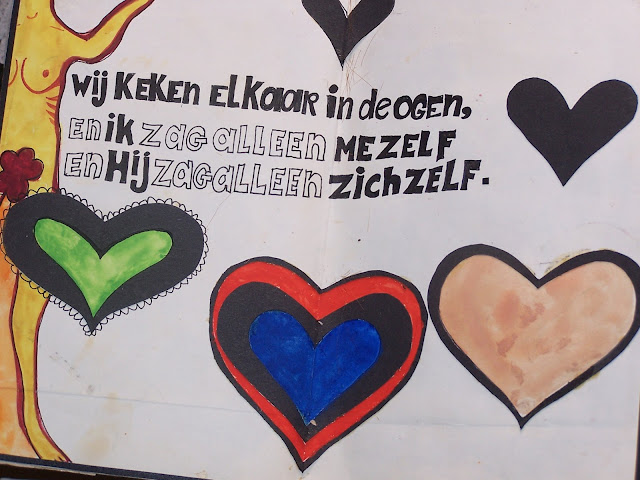 Wij KEKEN ELKaar in de OGEN,
EN iK ZAG ALLEEN MEZELF
EN Hij ZAG ALLEEN ZichZELF.